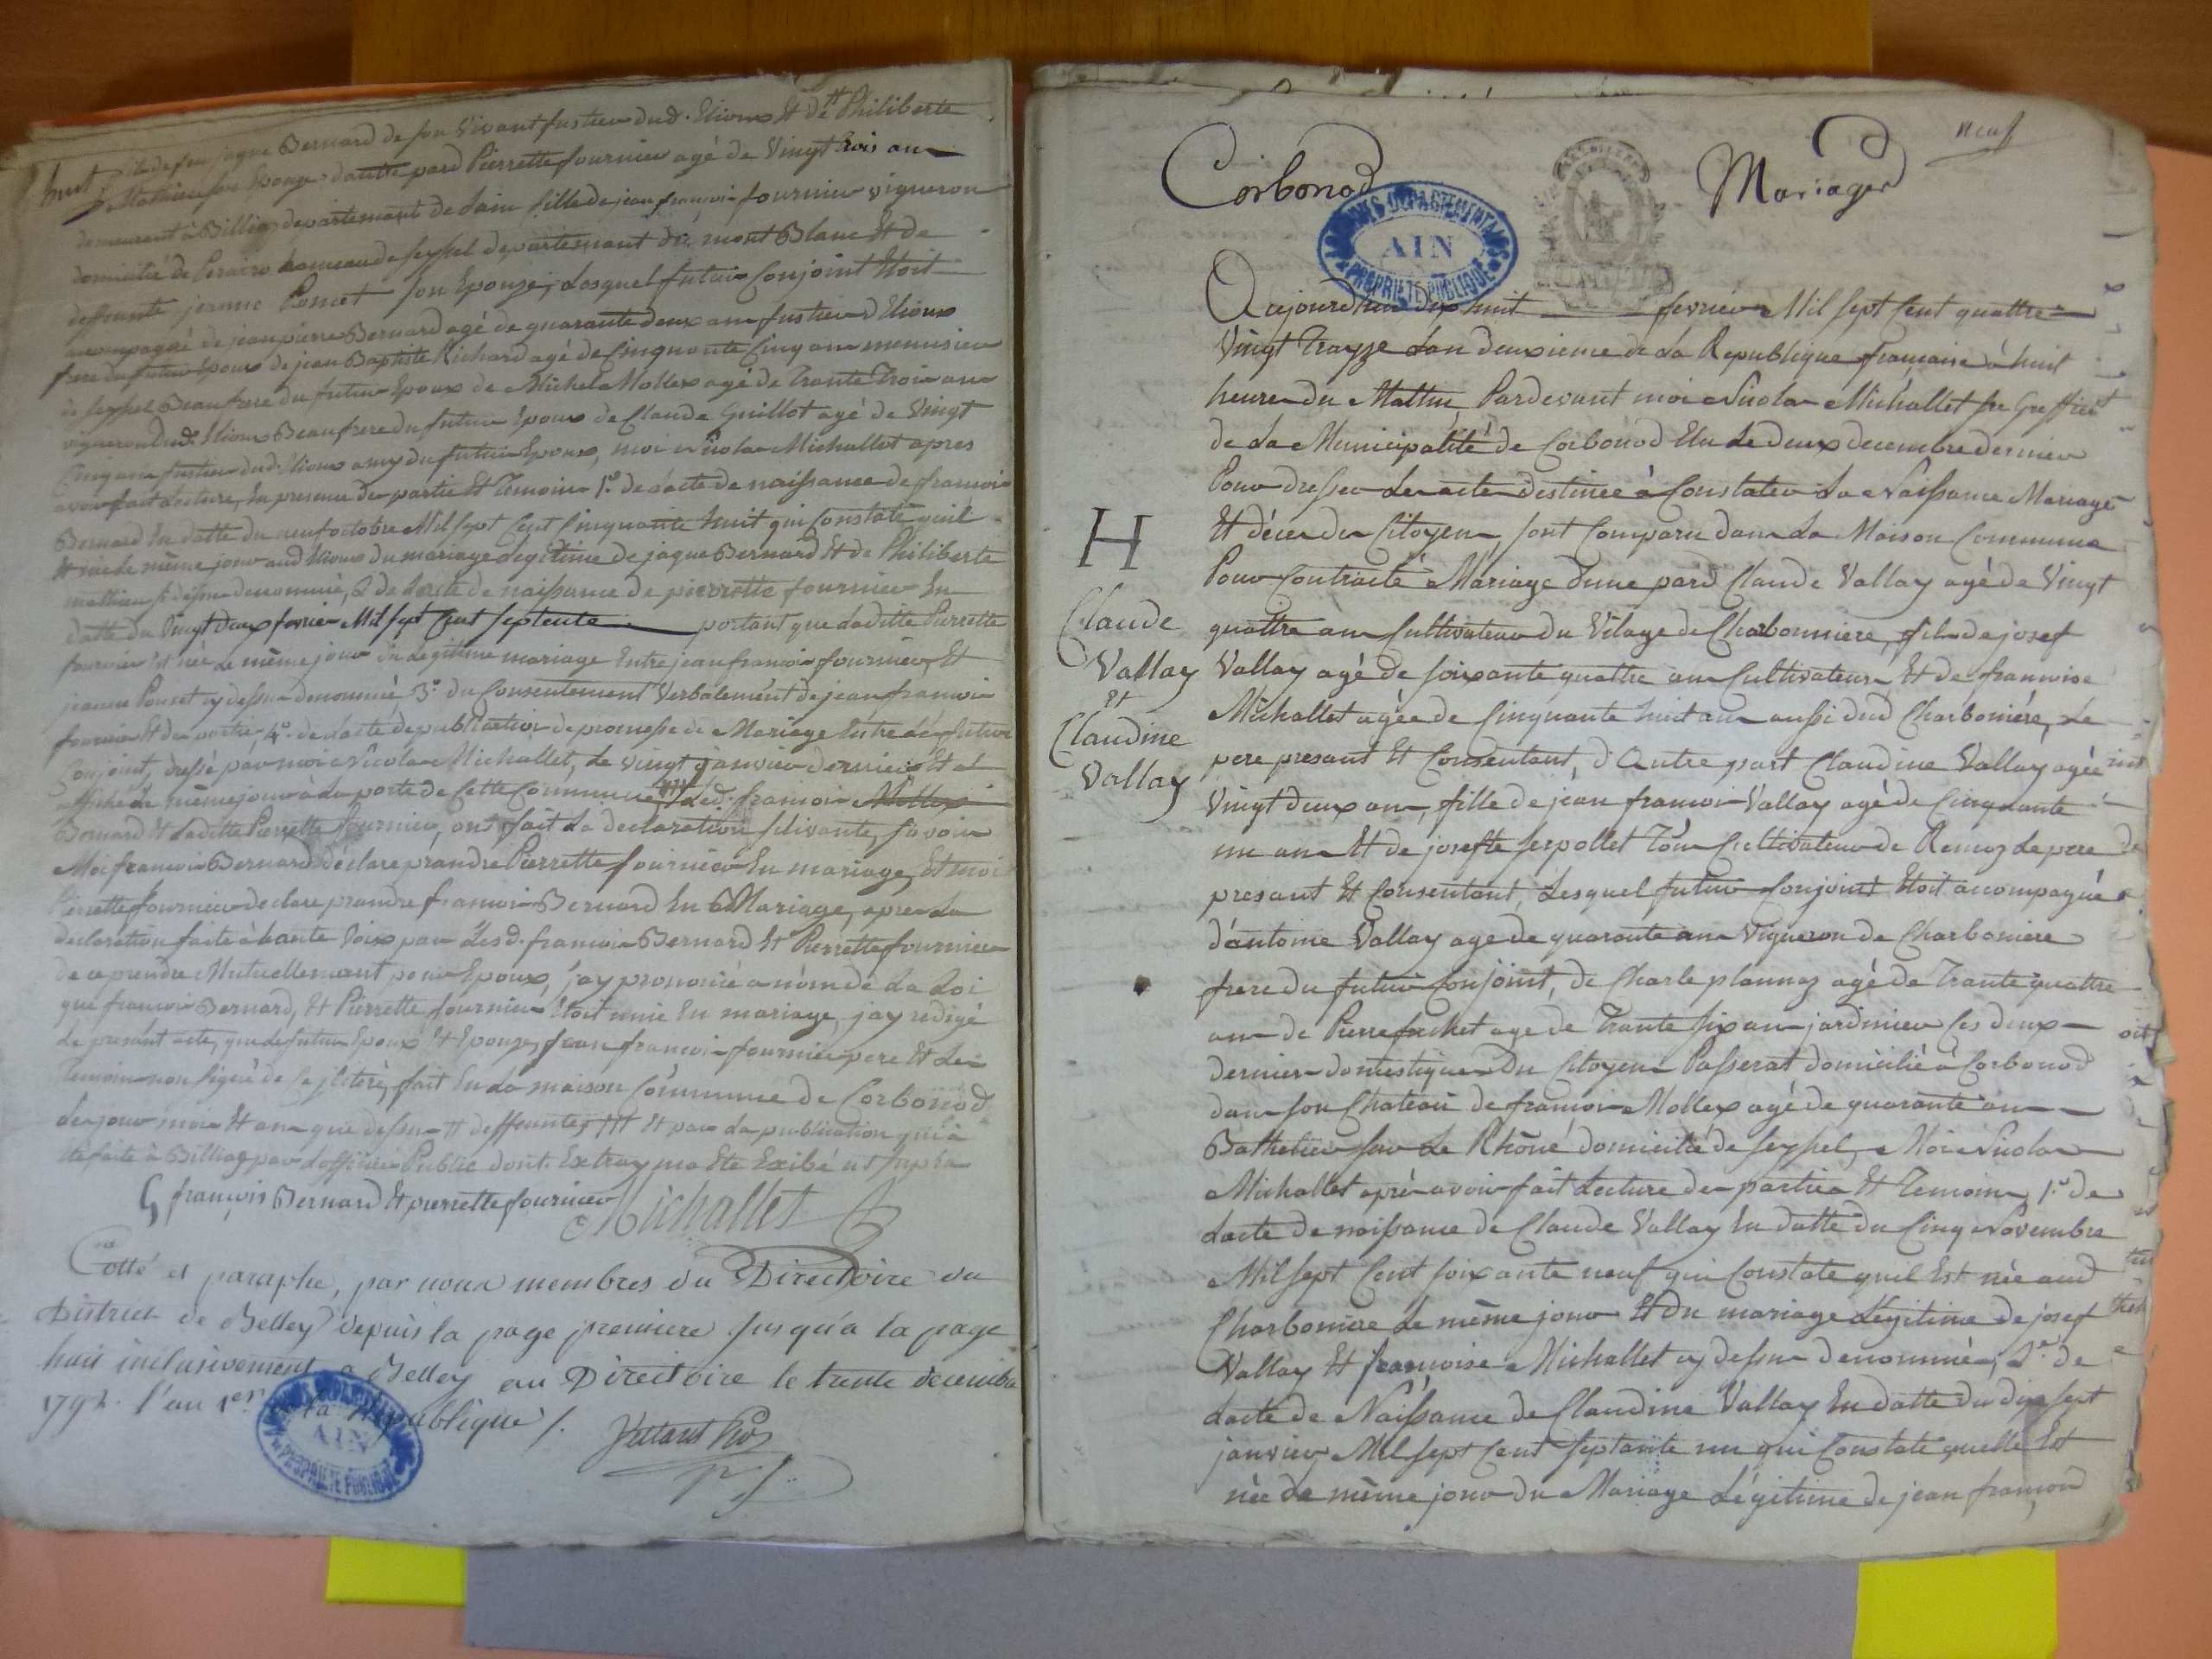 huit
fils de feu jaque Bernard de son Vivant fustier dud. Elioux Et de ++ Philiberte
Mathieu son Epouze, dautre pard Pierrette fournier agé de Vingt trois ans
demeurant à Billiag departement de Lain fille de jean françois fournier vigneron
domicilié de hameau de seyssel departemant du mont Blanc Et de
deffunte jeanne Poncet son Epouze, Lesquel futur Conjoint Etoit
accompagné de jean pierre Bernard agé de quarante deux ans fustier d Elioux
frere du futur Epoux de jean Baptiste Richard agé de Cinquante Cinq ans menuisier
de seyssel Beaufrere du futur Epoux de Michel Mollex agé de Trante Trois ans
vigneron dud. Elioux Beaufrere du futur Epoux de Claude Guillot agé de Vingt
Cinq ans fustier dud. Elioux amy du futur Epoux, moi Nicolas Michallet apres
avoir fait Lecture, En presence des partie Et Temoins 1.º de Lacte de naissance de francois
Bernard En datte du neuf octobre Mil sept Cent Cinquante huit qui Constate quil
Est née le même jour aud Elioux du mariage Legitime de jaque Bernard Et de Philiberte
mathieu si dessus denommé, 2 de Lacte de naissance de pierrette fournier En
datte du Vingt deux fevrier Mil sept Cent septente portant que Laditte Pierrette
fournier Est née Le même jour du Legitime mariage Entre jean francois fournier, Et
jeanne Poncet cy dessus denommé, 3.º du Consentement Verbalement de jean francois
fournier Et de 4.º de Lacte de publication de promesse de Mariage Entre Les futur
Conjoint, dressé par moi Nicolas Michallet, Le vingt janvier dernier Et
affiché Le même jour à La porte de Cette Commune, Led. francois Mollex
Bernard Et Laditte Pierrette fournier, ont fait La declaration suivante, savoir
Moi francois Bernard déclare prandre Pierrette fournier En mariage, Et moi
Pierrette fournier declare prandre francois Bernard En Mariage, apres La
declaration faite à haute Voix par Lesd. francois Bernard Et Pierrette fournier
de ce prendre Mutuellement pour Epoux, j'ay prononcé a nom de La Loi
que francois Bernard, Et Pierrette fournier Etoit unie En mariage, jay redigé
Le présant acte, que Le futur Epoux Et Epouze, jean francois fournier pere Et Les
Temoins non signé de Ce fait En La maison Commune de Corbonod
Les jour mois Et an que dessus ++ deffuntes +++ Et par La publication qui à
Eté faite à Billiag par Lofficier Public dont Extray ma Ete Exibé
françois Bernard Et pierrette fournier Michallet
Cotté et paraphé, par nous membres du Directoire du
District de Belley depuis la page premiere jusqu'à la page
huit inclusivement a Belley au Directoire le trente decembre
1792. l'an 1er de la République /.
ARCHIVES DEPARTEMENTALES
AIN
PROPRIETE PUBLIQUE
neuf
Corbonod
Mariages
ARCHIVES DEPARTEMENTALES
AIN
PROPRIETE PUBLIQUE
Aujourdhui Dix huit fevrier Mil sept Cent quattre
Vingt Trayze Lan deuxieme de La Republique française à huit
heure du Mattin, Pardevant moi Nicolas Michallet sre Greffier
de La Municipalité de Corbonod Elu Le deux decembre dernier
Pour dresser Les acte destinée à Constater La Naissance Mariage
Et décer des Citoyens, sont Comparu dans La Maison Commune
Pour Contracté Mariage dune pard Claude Vallay agé de Vingt
quattre ans Cultivateur du Vilage de Charbonniere, fils de josef
Vallay agé de soixante quattre ans Cultivateur, Et de francoise
Michallet agée de Cinquante huit ans aussi dud Charboniére, Le
pere presant Et Consentant, d'Autre part Claudine Vallay agée
Vingt deux ans, fille de jean francois Vallay agé de Cinquante
un ans Et de josefte serpollet Tous Cultivateur de Remoz Le pere
presant Et Consentant, Lesquel futur Conjoint Etoit acompagné
d'antoine Vallay age de quarante ans Vigneron de Charboniere
frere du futur Conjoint, de Charle plannaz agé de Trante quattre
ans de Pierre age de Trante six ans jardinier Les deux
dernier domestique du Citoyen Passerat domicilié à Corbonod
dans son Chateau de francois Mollex agé de quarante ans
Bathelier sur Le Rhône domicilié de seyssel, Moi Nicolas
Michallet après avoir fait Lecture des partie Et Temoins 1.º de
Lacte de naissance de Claude Vallay En datte du Cinq Novembre
Mil sept Cent soixante neuf qui Constate quil Est née aud
Charboniere Le même jour Et du mariage Légitime de josef
Vallay Et francoise Michallet cy dessus denommé, 2.º de
Lacte de Naissance de Claudine Vallay En datte du dix sept
janvier Mil sept Cent septante un qui Constate quelle Est
née Le même jour du Mariage Légitime de jean francois
H
Claude
Vallay
Et
Claudine
Vallay